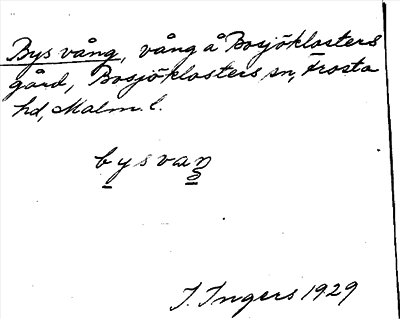 Bys vång, vång å Bosjöklosters
gård, Bosjöklosters sn, Frosta
hd, Malm. l.
bysvaŋ
I. Ingers 1929